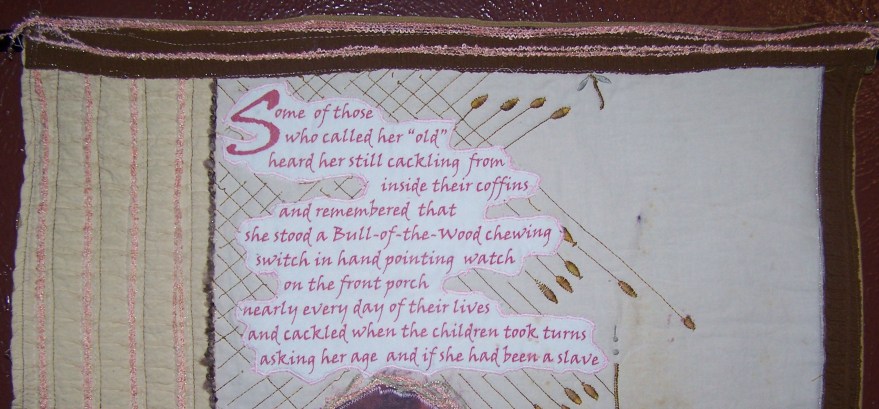 Some of those
who called her "old"
heard her still cackling from
inside their coffins
and remembered that
she stood a Bull-of-the-Wood chewing
switch in hand pointing watch
on the front porch
nearly every day of their lives
and cackled when the children took turns
asking her age and if she had been a slave